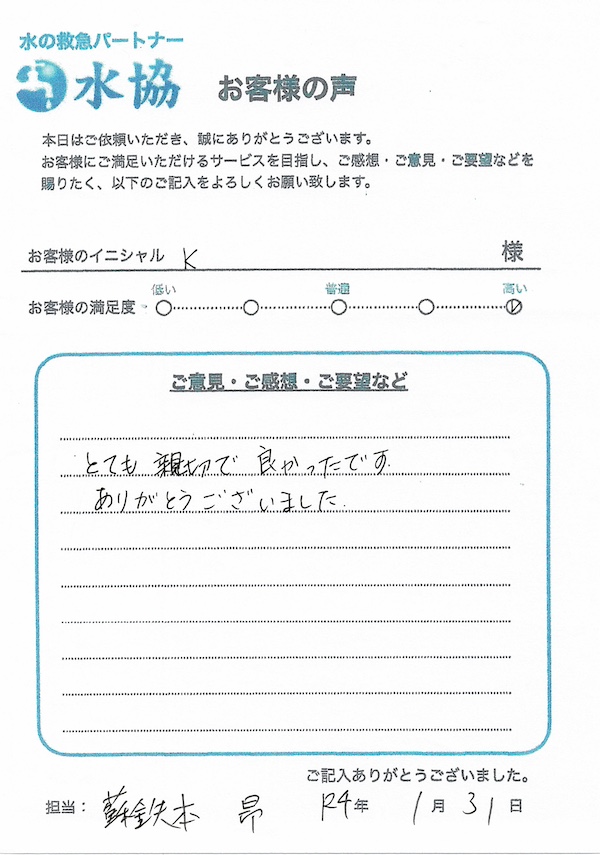 水の救急パートナー
水協 お客様の声
本日はご依頼いただき、誠にありがとうございます。
お客様にご満足いただけるサービスを目指し、ご感想・ご意見・ご要望などを
賜りたく、以下のご記入をよろしくお願い致します。
お客様のイニシャル K 様
低い 普通 高い
お客様の満足度
ご意見・ご感想・ご要望など
とても親切で良かったです.
ありがとうございました.
ご記入ありがとうございました。
担当: 蘇鉄本 昴 R4年 1月31日